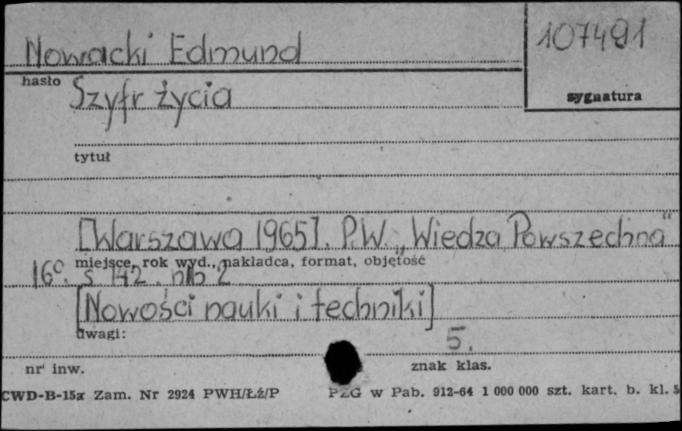 Nowacki Edmund
107491
hasło
Szyfr życia
sygnatura
tytuł
[Warszawa 1965]. P.W. „Wiedza Powszechna"
miejsce, rok wyd., nakladca, format, objętość
16°. s 142. nlb 2
[Nowości nauki i techniki]
uwagi:
5.
nr inw.
znak klas.
CWD-B-15a Zam. Nr 2924 PWH/Łż/P
PZG w Pab. 912-64 1 000 000 szt. kart. b. kl. 5